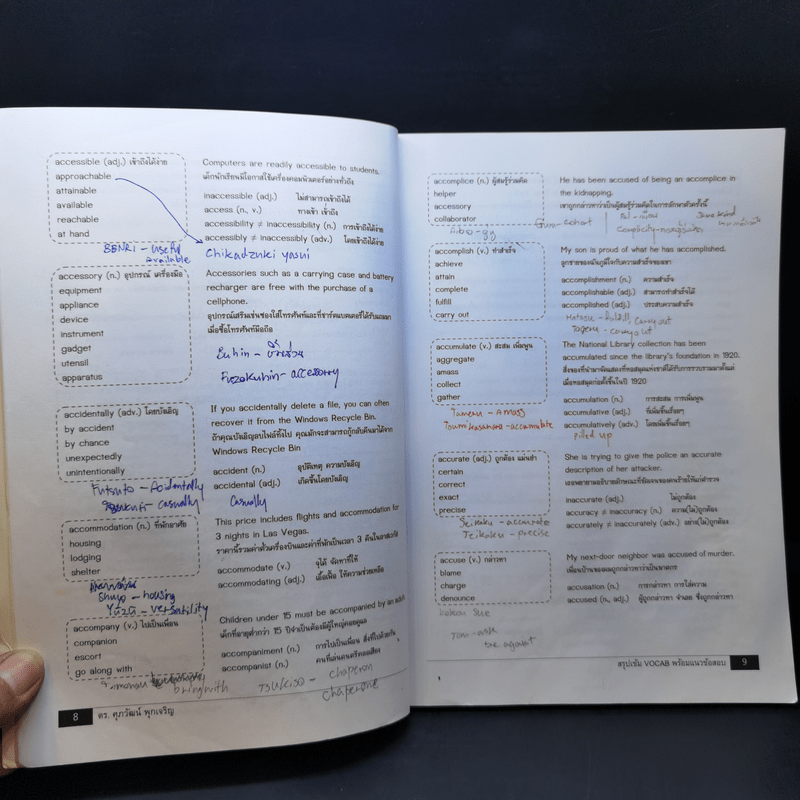 accessible (adj.) เข้าถึงได้ง่าย
approachable
attainable
available
reachable
at hand
BENRI - useful
available
Computers are readily accessible to students.
เด็กนักเรียนมีโอกาสใช้เครื่องคอมพิวเตอร์อย่างทั่วถึง
inaccessible (adj.) ไม่สามารถเข้าถึงได้
access (n., v.) ทางเข้า เข้าถึง
accessibility ≠ inaccessibility (n.) การเข้าถึงได้ง่าย
accessibly ≠ inaccessibly (adv.) โดยเข้าถึงได้ง่าย
Chikadzuki yasui
accessory (n.) อุปกรณ์ เครื่องมือ
equipment
appliance
device
instrument
gadget
utensil
apparatus
Accessories such as a carrying case and battery
recharger are free with the purchase of a
cellphone.
อุปกรณ์เสริมเช่นซองใส่โทรศัพท์และที่ชาร์ตแบตเตอรี่ได้รับแถมมา
เมื่อซื้อโทรศัพท์มือถือ
Buhin -
Fuzokuhin - accessory
accidentally (adv.) โดยบังเอิญ
by accident
by chance
unexpectedly
unintentionally
Futsuto - Acidentally
casually
If you accidentally delete a file, you can often
recover it from the Windows Recycle Bin.
ถ้าคุณบังเอิญลบไฟล์ทิ้งไป คุณมักจะสามารถกู้กลับคืนมาได้จาก
Windows Recycle Bin
accident (n.) อุบัติเหตุ ความบังเอิญ
accidental (adj.) เกิดขึ้นโดยบังเอิญ
Casually
accommodation (n.) ที่พักอาศัย
housing
lodging
shelter
Shuyo - housing
Yuzu - versatility
This price includes flights and accommodation for
3 nights in Las Vegas.
ราคานี้รวมค่าตั๋วเครื่องบินและค่าที่พักเป็นเวลา 3 คืนในลาสเวกัส
accommodate (v.) จุได้ จัดหาที่ให้
accommodating (adj.) เอื้อเฟื้อ ให้ความช่วยเหลือ
accompany (v.) ไปเป็นเพื่อน
companion
escort
go along with
bring with
Children under 15 must be accompanied by an adult.
เด็กที่อายุต่ำกว่า 15 ปีจำเป็นต้องมีผู้ใหญ่คอยดูแล
accompaniment (n.) การไปเป็นเพื่อน สิ่งที่ไปด้วยกัน
accompanist (n.) คนที่เล่นดนตรีคลอเสียง
Tsukiso - chaperon
chaperone
8 ดร. ศุภวัฒน์ พุกเจริญ
accomplice (n.) ผู้สมรู้ร่วมคิด
helper
accessory
collaborator
He has been accused of being an accomplice in
the kidnapping.
เขาถูกกล่าวหาว่าเป็นผู้สมรู้ร่วมคิดในการลักพาตัวครั้งนี้
accomplish (v.) ทำสำเร็จ
achieve
attain
complete
fulfill
carry out
My son is proud of what he has accomplished.
ลูกชายของฉันภูมิใจกับความสำเร็จของเขา
accomplishment (n.) ความสำเร็จ
accomplishable (adj.) สามารถทำสำเร็จได้
accomplished (adj.) ประสบความสำเร็จ
Hatasu - fulfill, carry out
Togeru - carry out
accumulate (v.) สะสม เพิ่มพูน
aggregate
amass
collect
gather
Tameru - Amass
Tsumikasanaru - accumulate
The National Library collection has been
accumulated since the library's foundation in 1920.
สิ่งของที่นำมาจัดแสดงที่หอสมุดแห่งชาติได้รับการรวบรวมมาตั้งแต่
เมื่อหอสมุดก่อตั้งขึ้นในปี 1920
accumulation (n.) การสะสม การเพิ่มพูน
accumulative (adj.) ที่เพิ่มขึ้นเรื่อยๆ
accumulatively (adv.) โดยเพิ่มขึ้นเรื่อยๆ
pilled up
accurate (adj.) ถูกต้อง แม่นยำ
certain
correct
exact
precise
Seikaku - accurate
Teikaku - precise
She is trying to give the police an accurate
description of her attacker.
inaccurate (adj.) ไม่ถูกต้อง
accuracy ≠ inaccuracy (n.) ความ(ไม่)ถูกต้อง
accurately ≠ inaccurately (adv.) อย่าง(ไม่)ถูกต้อง
accuse (v.) กล่าวหา
blame
charge
denounce
My next-door neighbor was accused of murder.
เพื่อนบ้านของผมถูกกล่าวหาว่าเป็นฆาตกร
accusation (n.) การกล่าวหา การใส่ความ
accused (n., adj.) ผู้ถูกกล่าวหา จำเลย ซึ่งถูกกล่าวหา
สรุปเข้ม VOCAB พร้อมแนวข้อสอบ 9